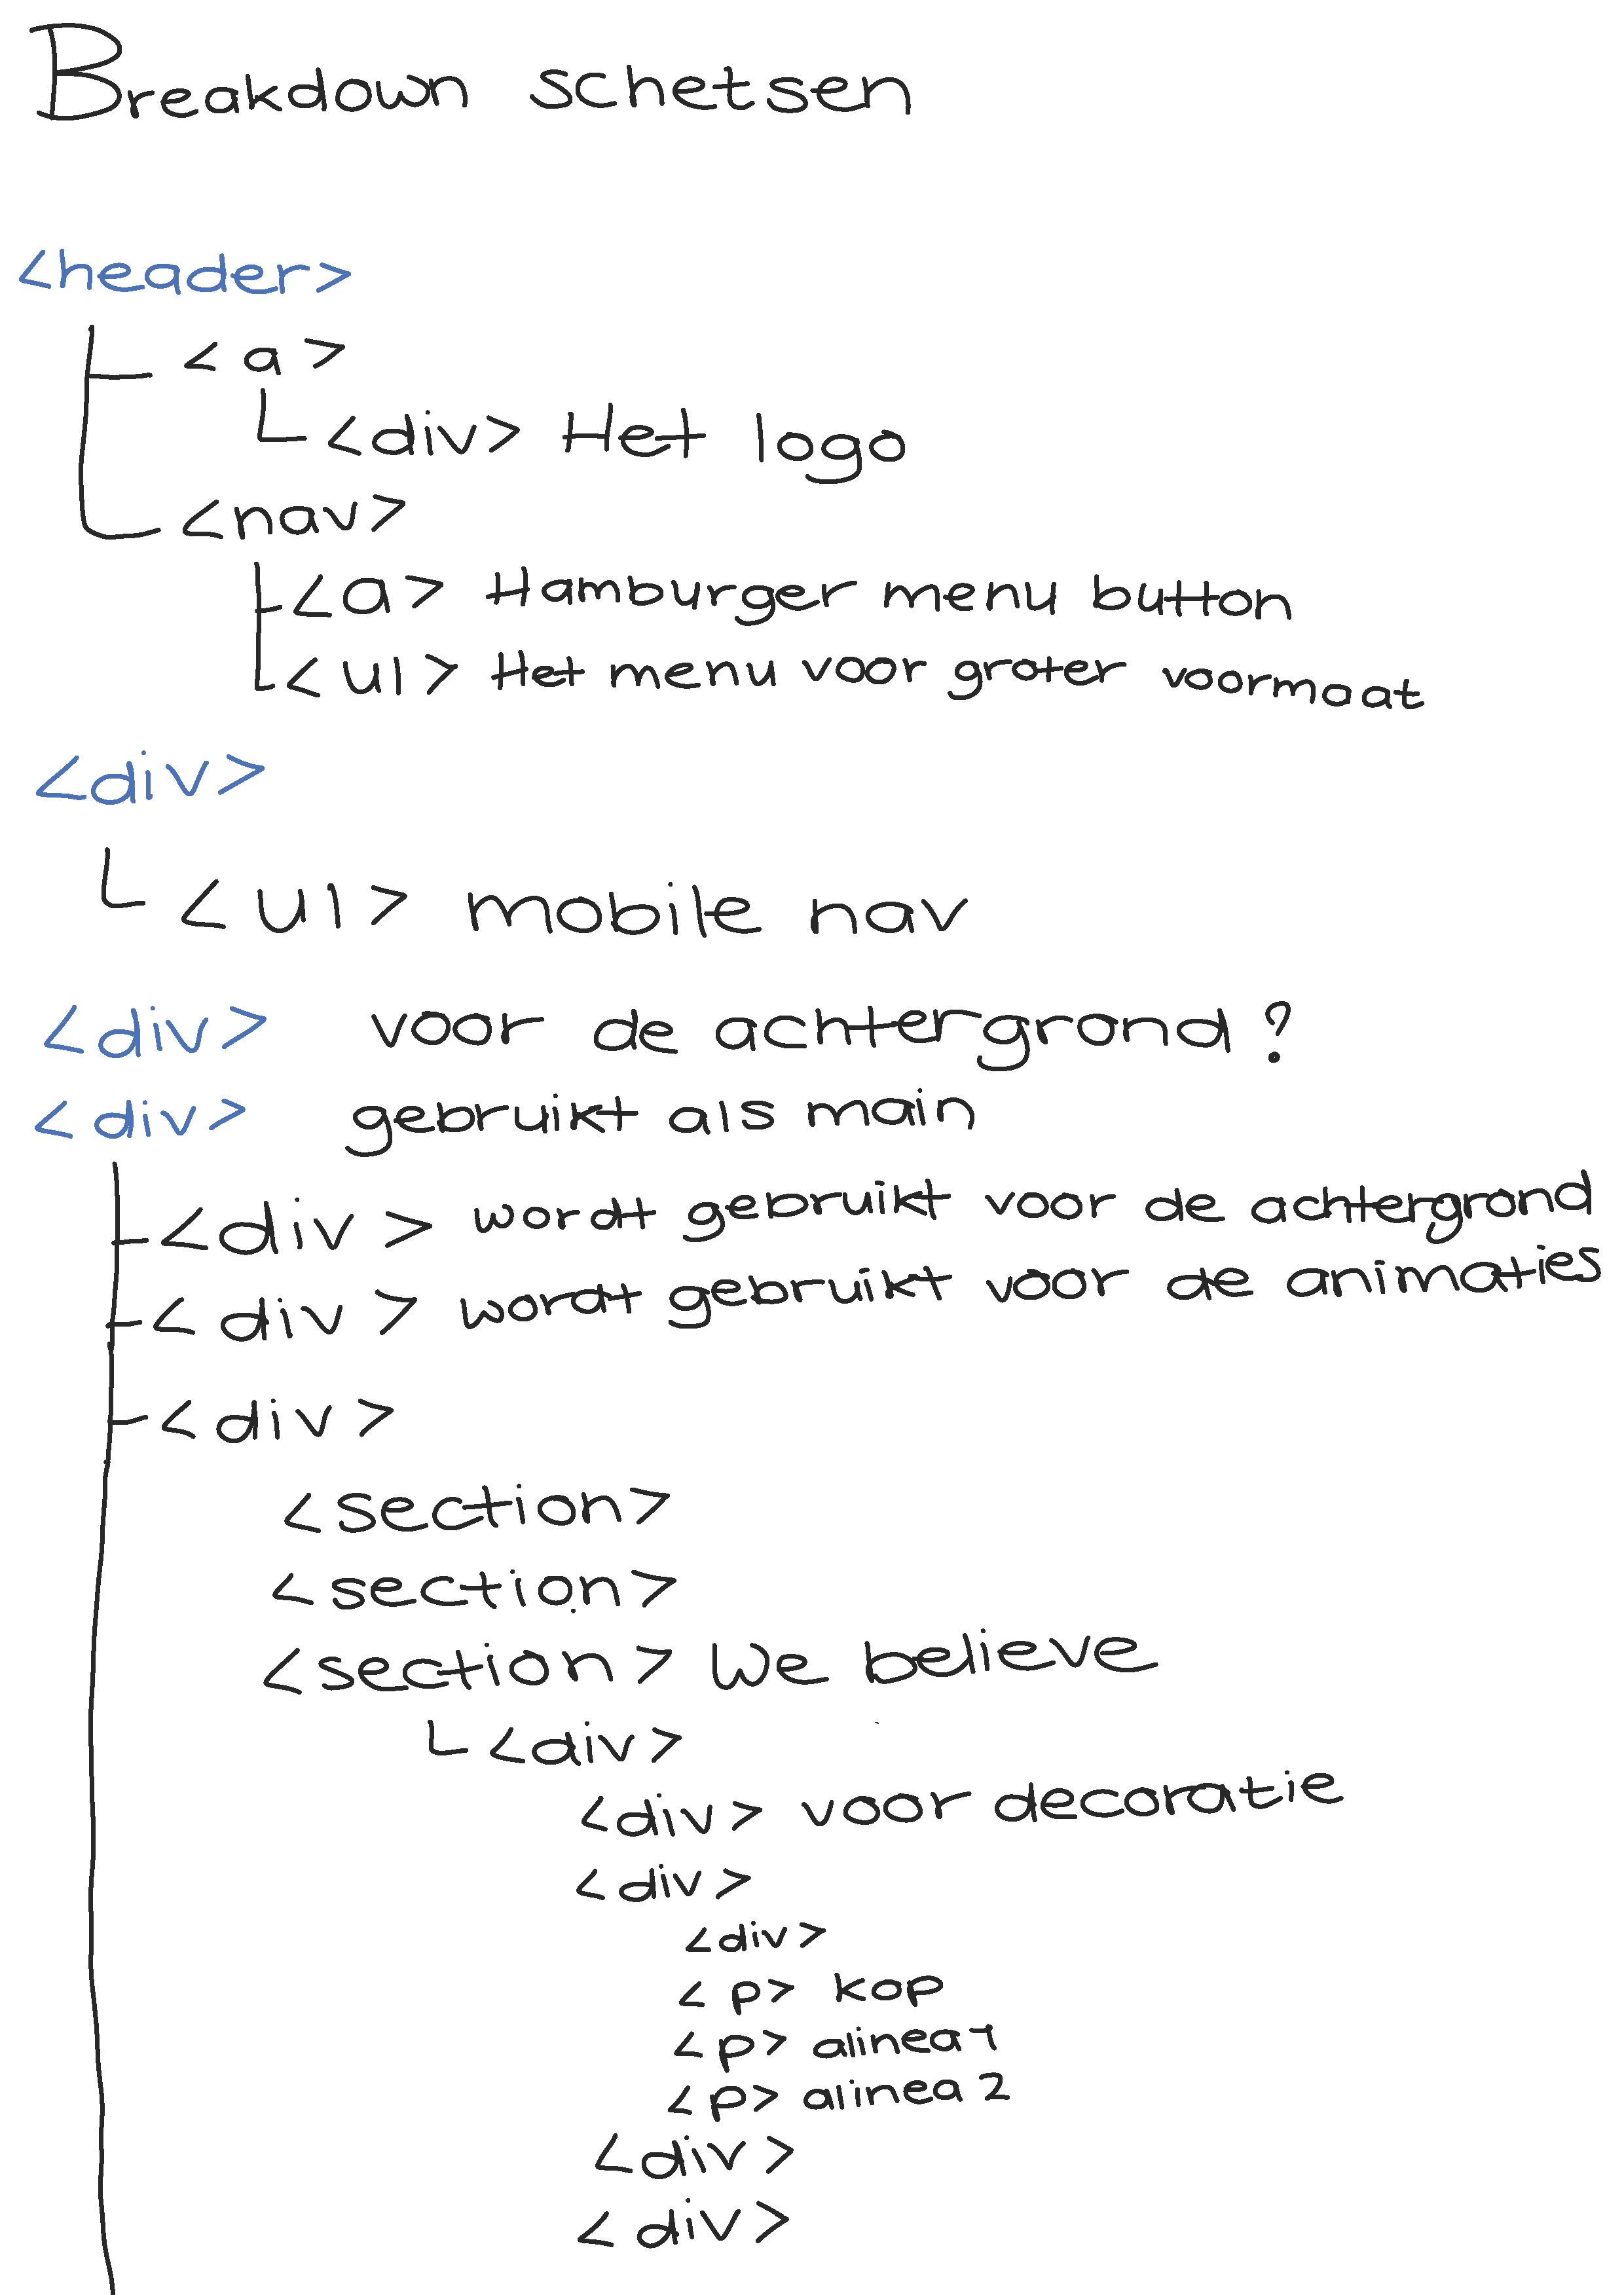 Breakdown schetsen
<header>
<a>
<div> Het logo
<nav>
<a> Hamburger menu button
<ul> Het menu voor groter voormaat
<div>
<ul> mobile nav
<div> voor de achtergrond?
<div> gebruikt als main
<div> wordt gebruikt voor de achtergrond
<div> wordt gebruikt voor de animaties
<div>
<section>
<section>
<section> We believe
<div>
<div> voor decoratie
<div>
<div>
<p> kop
<p> alinea 1
<p> alinea 2
<div>
<div>